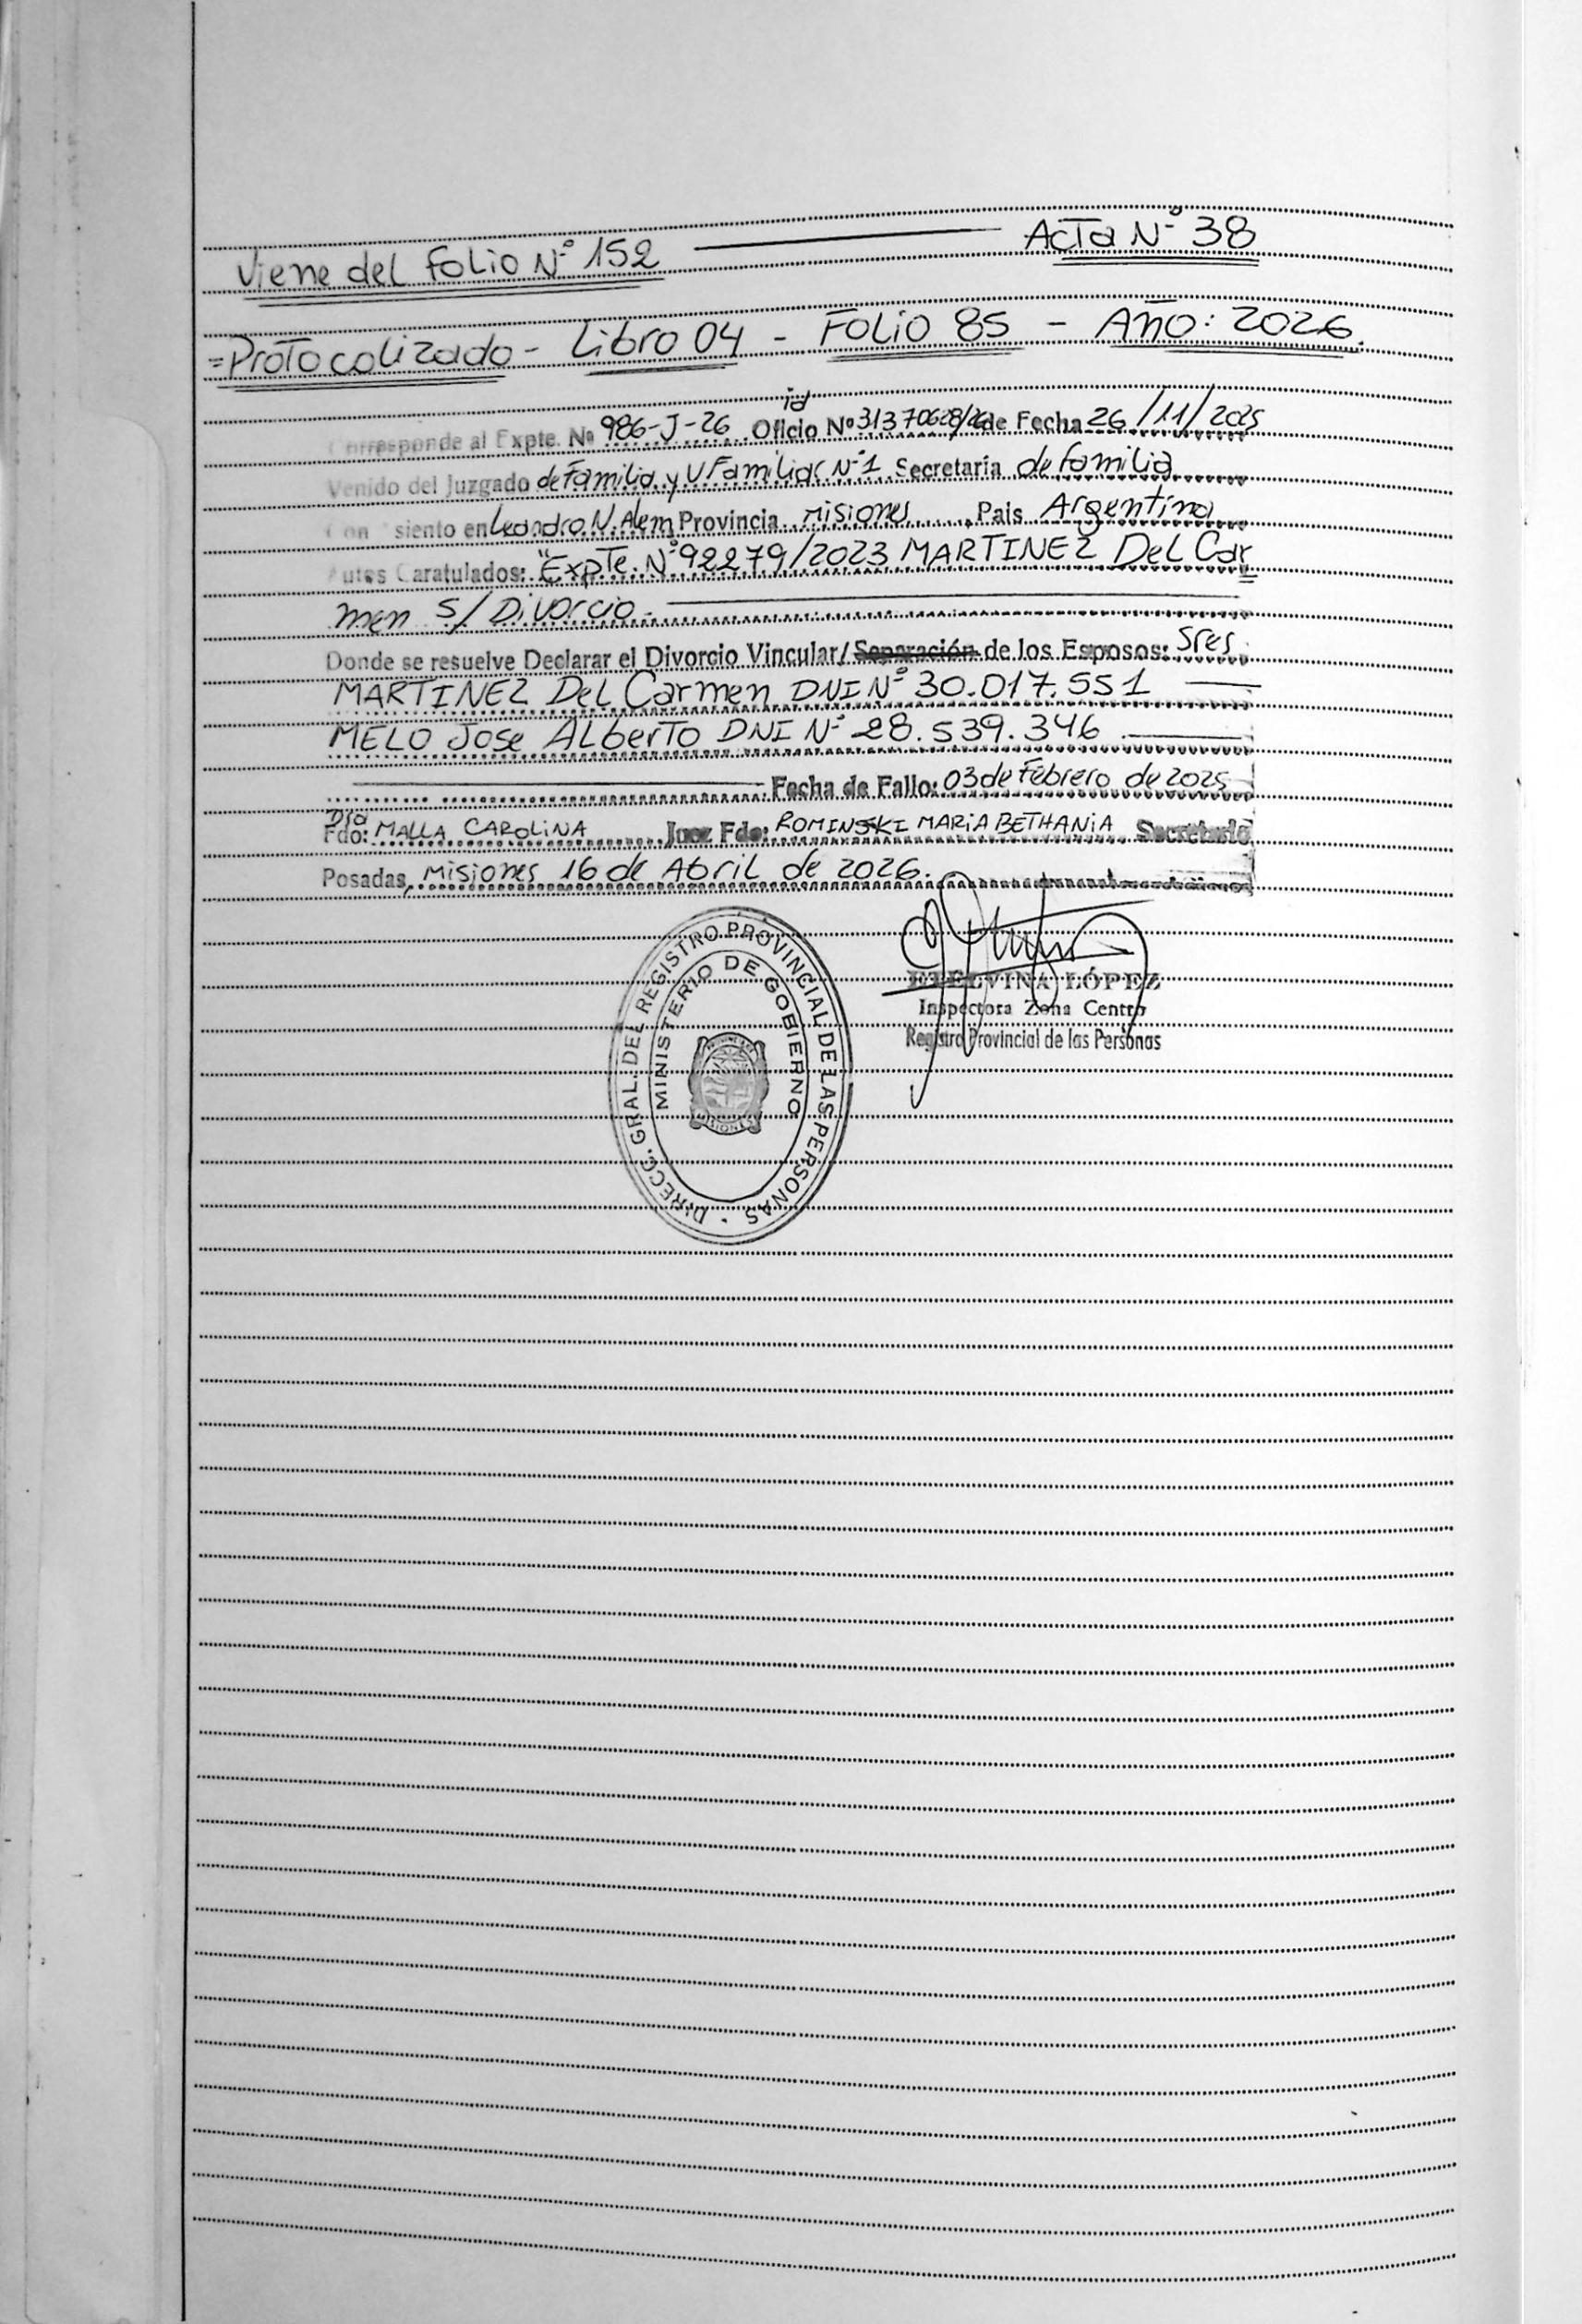 Acta Nº 38
Viene del folio Nº 152
=Protocolizado - Libro 04 - Folio 85 - Año: 2026.
id
Corresponde al Expte. Nº 986-J-26 Oficio Nº de Fecha 26/11/2025
Venido del Juzgado de Familia y V Familiar Nº1 Secretaría de familia
Con siento en Leandro N. Alem Provincia Misiones, Pais Argentina
Autos Caratulados: "Expte. Nº 92279/2023 MARTINEZ Del Car
men s/ Divorcio.
Donde se resuelve Declarar el Divorcio Vincular/Separación de los Esposos: Sres
MARTINEZ Del Carmen DNI Nº 30.017.551
MELO Jose Alberto DNI Nº 28.539.346
Fecha de Fallo: 03 de Febrero de 2025
Dra
Fdo: MALLA CAROLINA Juez Fdo: ROMINSKI MARIA BETHANIA Secretario
Posadas, Misiones 16 de Abril de 2026.
DIRECC. GRAL. DEL REGISTRO PROVINCIAL DE LAS PERSONAS
MINISTERIO DE GOBIERNO
MISIONES
ETELVINA LÓPEZ
Inspectora Zona Centro
Registro Provincial de las Personas